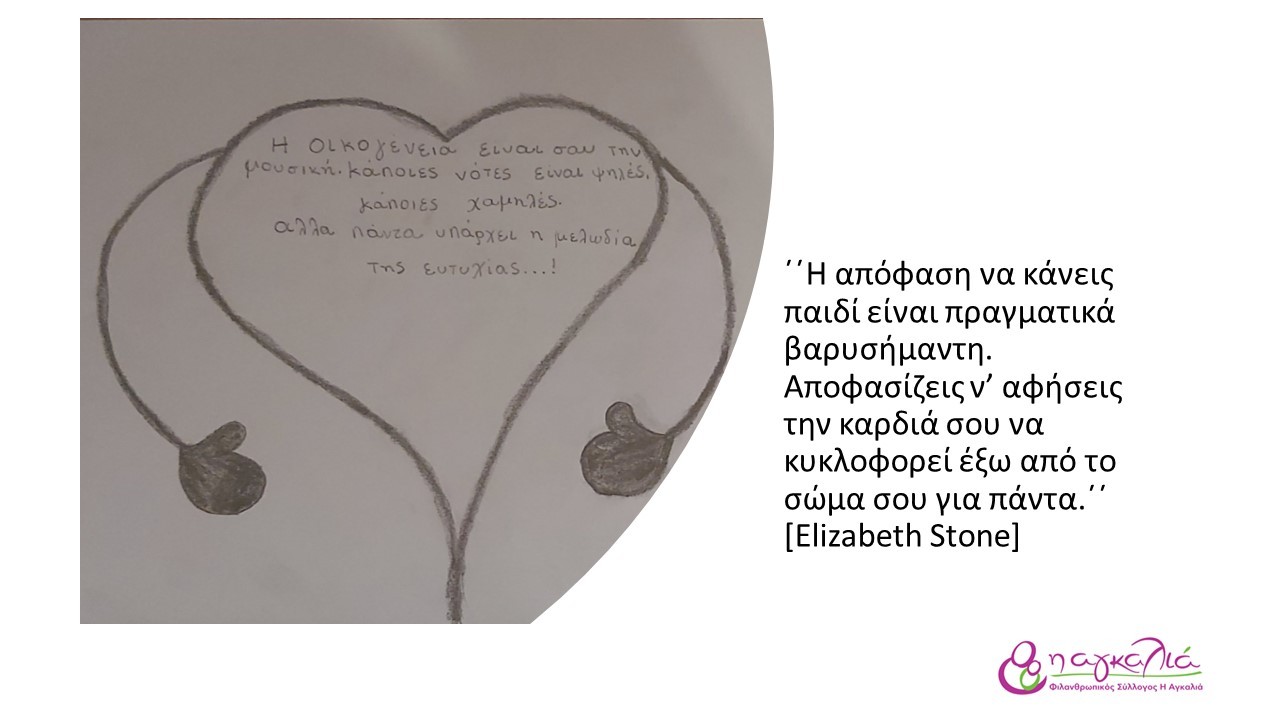 Η Οικογένεια ειναι σαν την
μουσική. κάποιες νότες είναι ψηλές,
κάποιες χαμηλές.
αλλα πάντα υπάρχει η μελωδία
της ευτυχίας...!
΄΄Η απόφαση να κάνεις
παιδί είναι πραγματικά
βαρυσήμαντη.
Αποφασίζεις ν’ αφήσεις
την καρδιά σου να
κυκλοφορεί έξω από το
σώμα σου για πάντα.΄΄
[Elizabeth Stone]
η αγκαλιά
Φιλανθρωπικός Σύλλογος Η Αγκαλιά